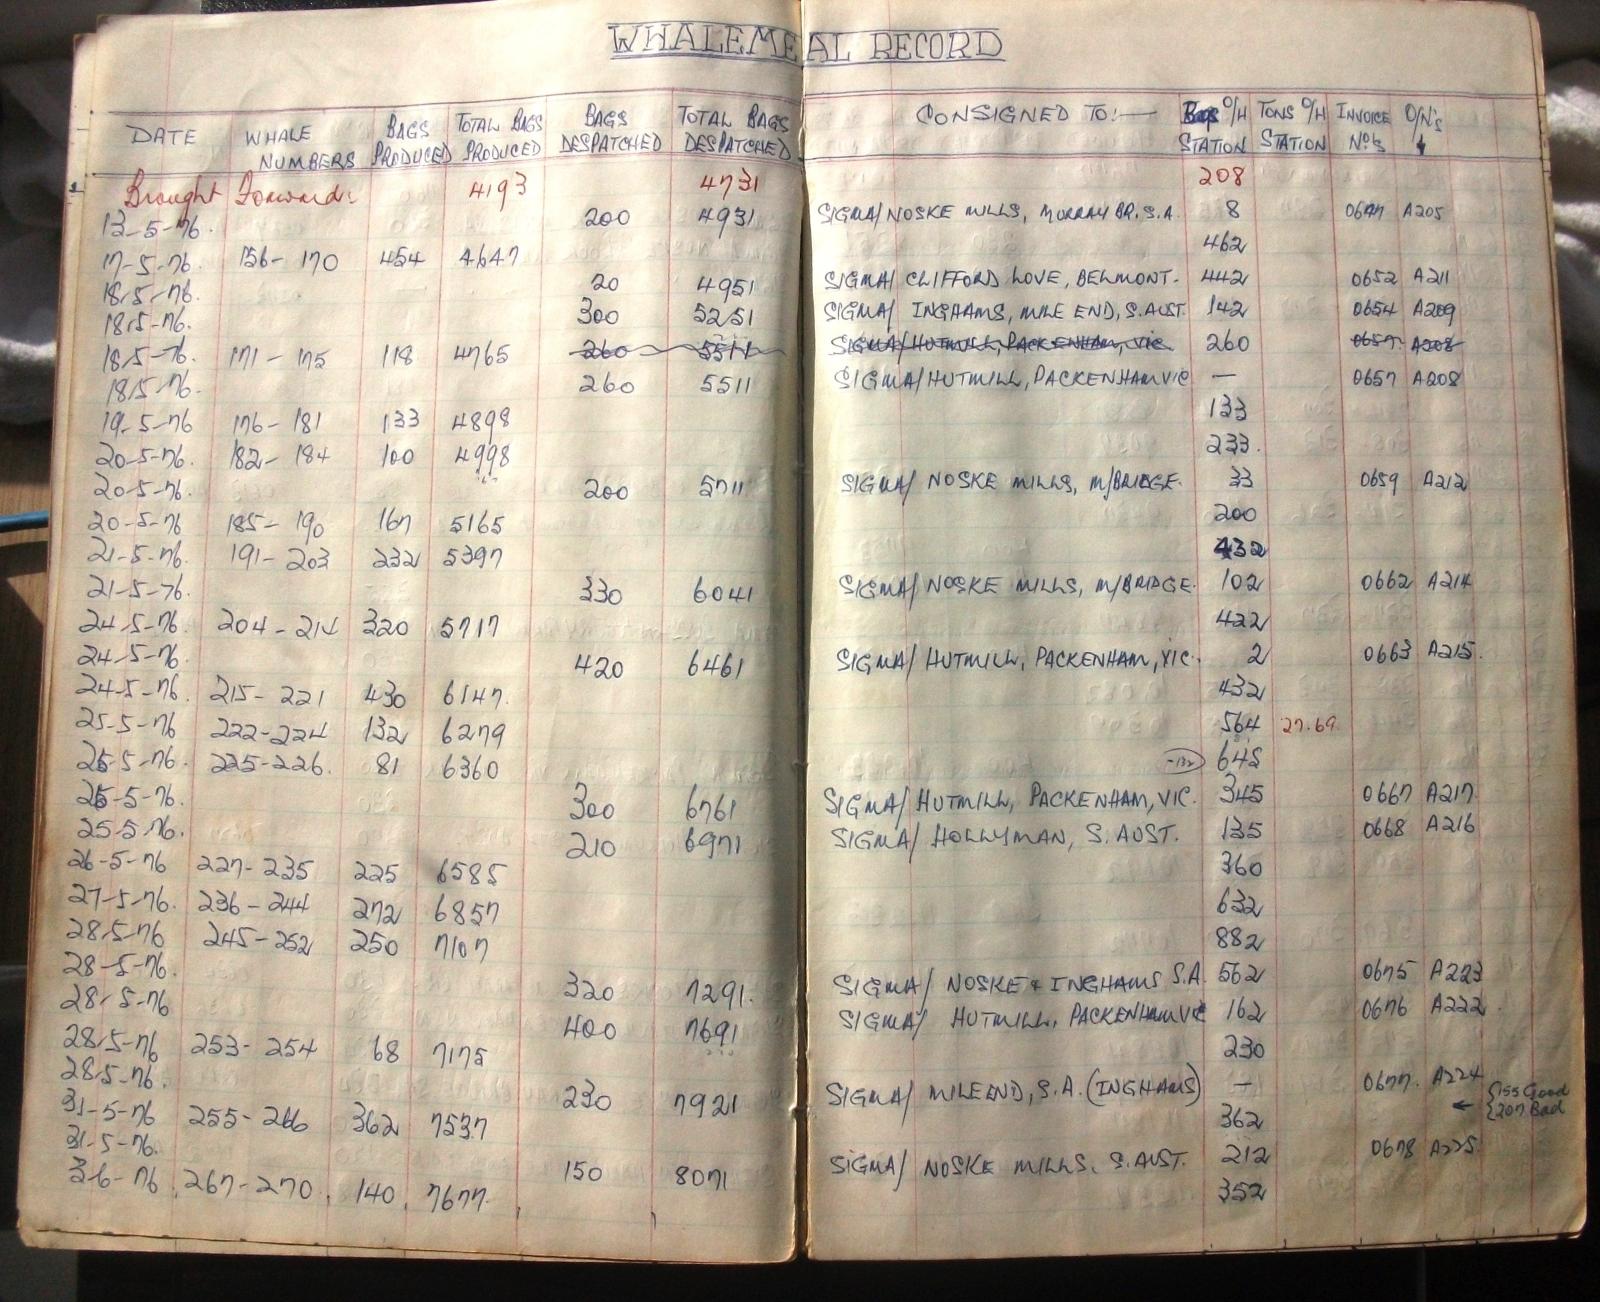 WHALEMEAL RECORD
DATE WHALE NUMBERS BAGS PRODUCED TOTAL BAGS PRODUCED BAGS DESPATCHED TOTAL BAGS DESPATCHED CONSIGNED TO:— Bags O/H STATION TONS O/H STATION INVOICE No's O/N's
Brought Forward: 4193 4731 208
13-5-76. 200 4931 SIGMA/NOSKE MILLS, MURRAY BR. S.A. 8 0647 A205
17-5-76. 156-170 454 4647 462
18-5-76. 20 4951 SIGMA/CLIFFORD LOVE, BELMONT. 442 0652 A211
18-5-76. 300 5251 SIGMA/INGHAMS, MILE END, S.AUST. 142 0654 A209
18-5-76. 171-175 118 4765 260 5511 SIGMA/HUTMILL, PACKENHAM, VIC. 260 0657 A208
18-5-76. 260 5511 SIGMA/HUTMILL, PACKENHAM VIC — 0657 A208
19-5-76 176-181 133 4898 133
20-5-76. 182-184 100 4998 233.
20-5-76. 200 5711 SIGMA/NOSKE MILLS, M/BRIDGE. 33 0659 A212
20-5-76 185-190 167 5165 200
21-5-76. 191-203 232 5397 432
21-5-76. 330 6041 SIGMA/NOSKE MILLS, M/BRIDGE. 102 0662 A214
24-5-76. 204-214 320 5717 422
24-5-76. 420 6461 SIGMA/HUTMILL, PACKENHAM, VIC. 2 0663 A215.
24-5-76. 215-221 430 6147. 432
25-5-76. 222-224 132 6279 564 27.69.
25-5-76. 225-226. 81 6360 -132 645
25-5-76. 300 6761 SIGMA/HUTMILL, PACKENHAM, VIC. 345 0667 A217.
25-5-76. 210 6971 SIGMA/HOLLYMAN, S. AUST. 135 0668 A216
26-5-76 227-235 225 6585 360
27-5-76. 236-244 272 6857 632
28-5-76 245-252 250 7107 882
28-5-76. 320 7291. SIGMA/NOSKE & INGHAMS S.A. 562 0675 A223
28-5-76 400 7691 SIGMA/HUTMILL, PACKENHAM VIC 162 0676 A222
28-5-76 253-254 68 7175 230
28-5-76. 230 7921 SIGMA/MILE END, S.A. (INGHAMS) — 0677. A224
31-5-76 255-266 362 7537 362 ← {155 Good {207 Bad
31-5-76. 150 8071 SIGMA/NOSKE MILLS. S.AUST. 212 0678 A225
3-6-76 267-270. 140. 7677. 352